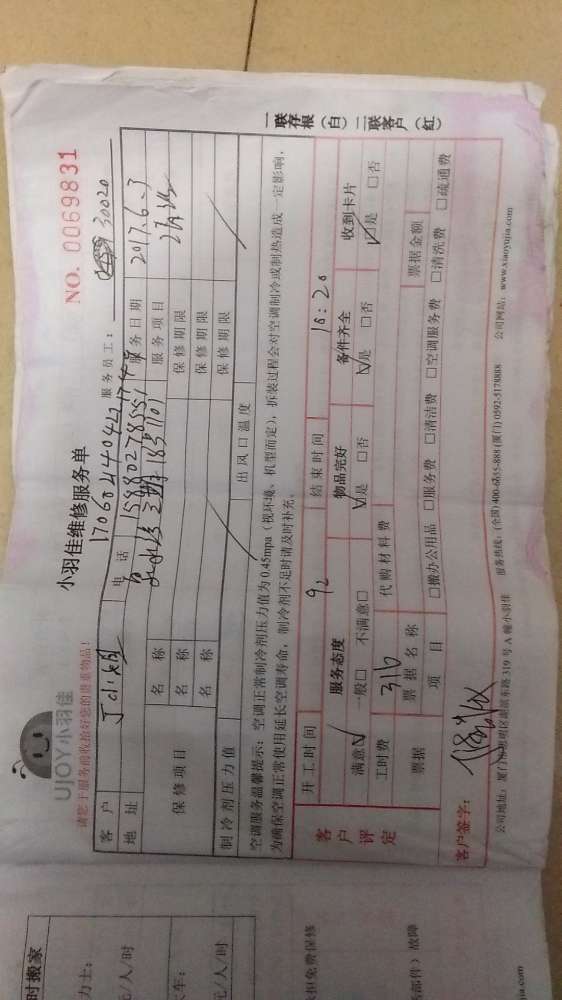 UJOY小羽佳
小羽佳维修服务单
NO. 0069831
请您于服务前收拾好您的贵重物品!
服务员工: 30020
客户
电话
服务日期 2017.6.3
地址
服务项目
保修项目
名称
保修期限
名称
保修期限
名称
保修期限
制冷剂压力值
出风口温度
空调服务温馨提示: 空调正常制冷剂压力值为 0.45mpa (视环境、机型而定), 拆装过程会对空调制冷或制热造成一定影响,
为确保空调正常使用延长空调寿命, 制冷剂不足时请及时补充。
客户评定
开工时间
结束时间 18:20
服务态度
物品完好
备件齐全
收到卡片
满意☑ 一般□ 不满意□
☑是 □否
☑是 □否
☑是 □否
工时费 316
代购材料费
票据
票据名称
票据金额
项目
□搬办公用品 □服务费 □清洁费 □空调服务费 □清洗费 □疏通费
客户签字:
公司地址: 厦门市思明区湖滨东路 319 号 A 幢小羽佳
服务热线: (全国) 400-6655-888 (厦门) 0592-5178888
公司网站: www.xiaoyujia.com
一联存根 (白) 二联客户 (红)
时搬家
力士:
元/人/时
元/人/时
担免费保修
部件) 故障
jia.com